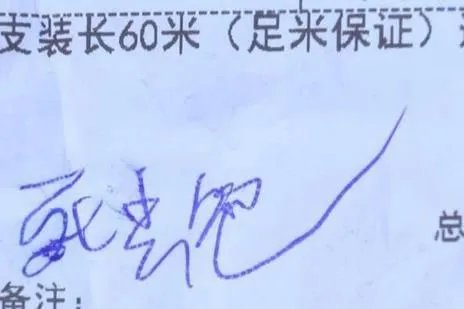 支装长60米（足米保证）
死去吧
总
备注：